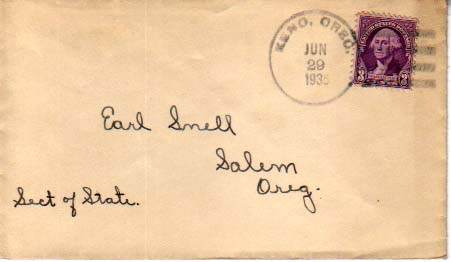 KENO, OREG.
JUN
29
1935
3 3
Earl Snell
Salem
Oreg.
Sect of State.